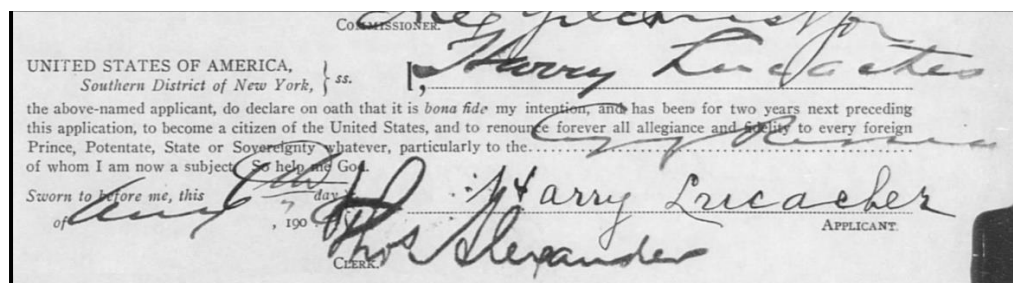 Alex Gilchrist Jr
COMMISSIONER.
UNITED STATES OF AMERICA,
Southern District of New York, } ss.
I, Harry Lucacher
the above-named applicant, do declare on oath that it is bona fide my intention, and has been for two years next preceding
this application, to become a citizen of the United States, and to renounce forever all allegiance and fidelity to every foreign
Prince, Potentate, State or Sovereignty whatever, particularly to the Czar of Russia
of whom I am now a subject. So help me God.
Sworn to before me, this day
of , 190
Harry Lucacher
APPLICANT.
Thos Alexander
CLERK.